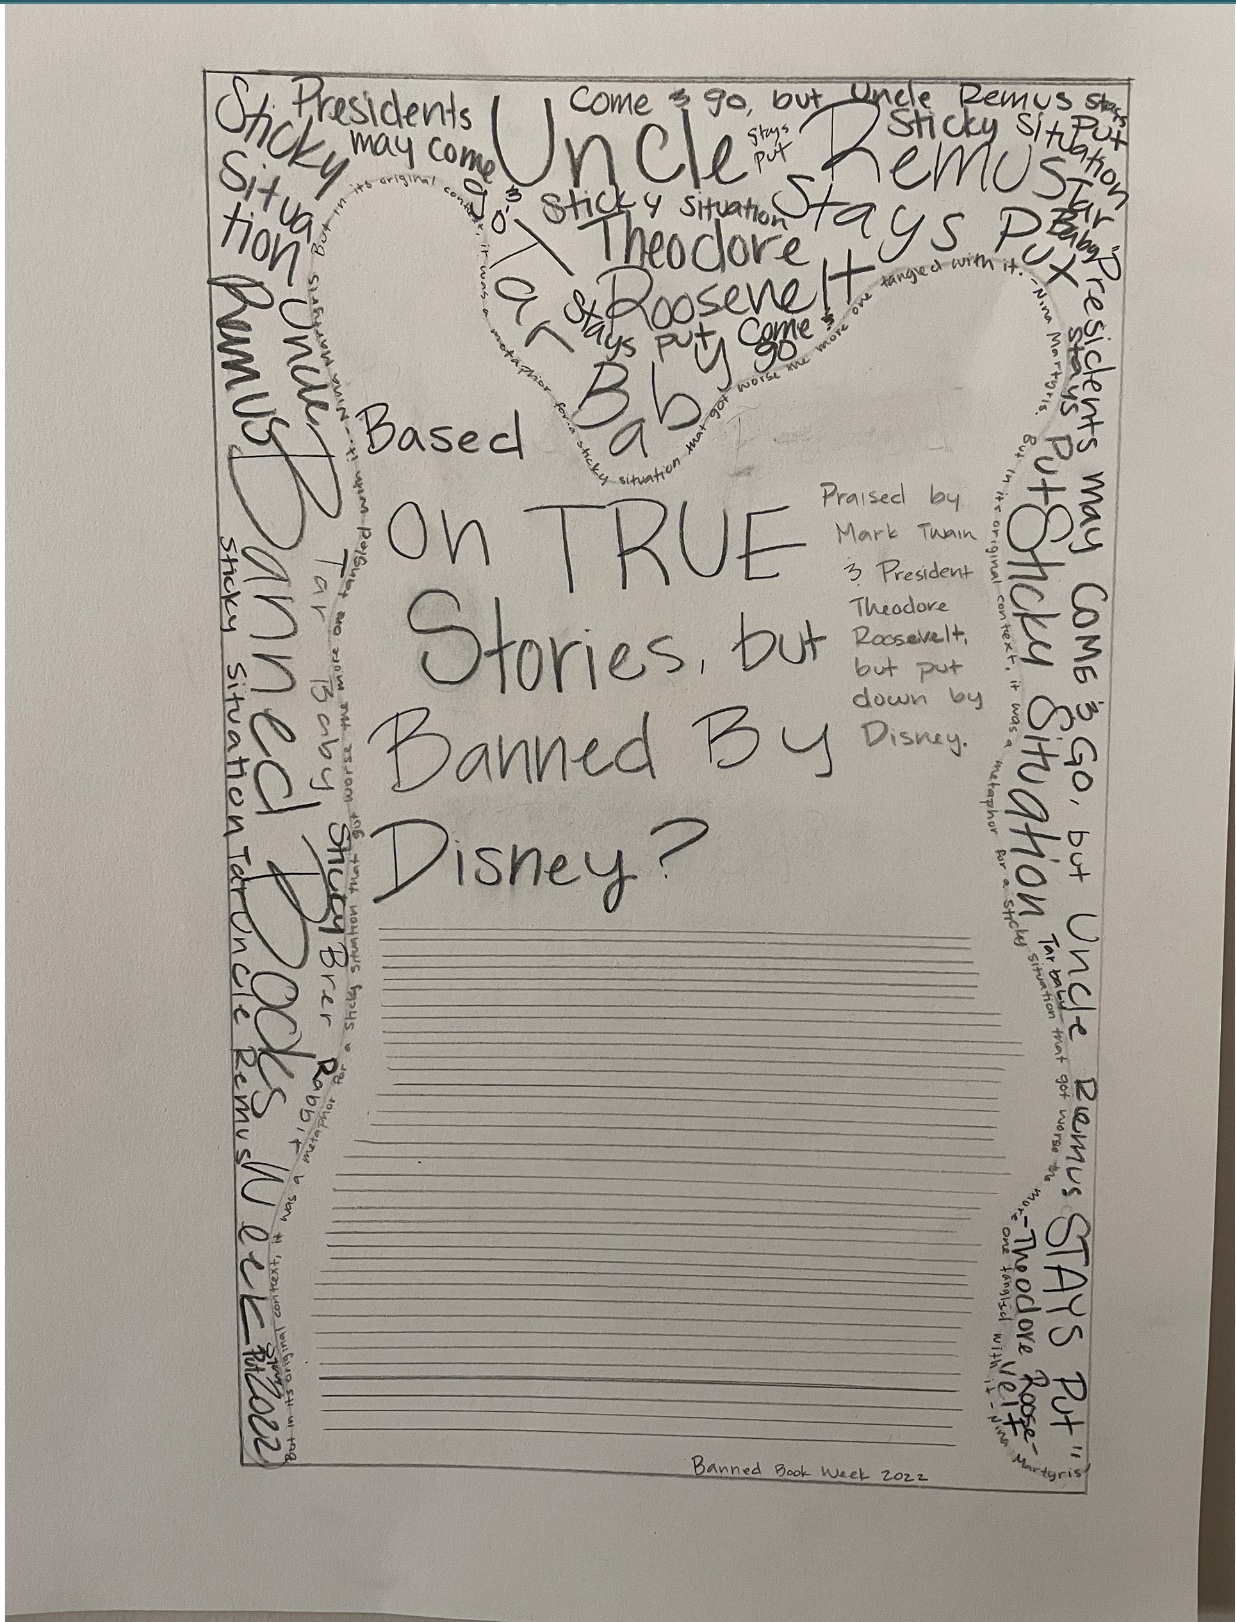 Sticky Situa
tion
Presidents
may come
& go,
Come & go, but Uncle Remus stays
Put
Uncle Remus
stays
put
Sticky Situation
Stays Put
Sticky Situation
Tar
Baby
Theodore
Roosevelt
Tar
Baby
Stays put
Come &
go
But in its original context, it was a metaphor for a sticky situation that got worse the more one tangled with it. -Nina Martyris.
But in its original context, it was a metaphor for a sticky situation that got worse the more one tangled with it - Nina Martyris
Uncle
Remus
Banned Books Week 2022
Sticky Situation Tar Uncle Remus
Tar Baby Sticky Brer Rabbit
But in its original context, it was a metaphor for a sticky situation that got worse the more one tangled with it. - Nina Martyris
Based
on TRUE
Stories, but
Banned By
Disney?
Praised by
Mark Twain
& President
Theodore
Roosevelt,
but put
down by
Disney.
"Presidents may COME & GO, but Uncle Remus STAYS PUT"
Stays Put Sticky Situation
Tar baby
-Theodore Roose-
velt
Banned Book Week 2022